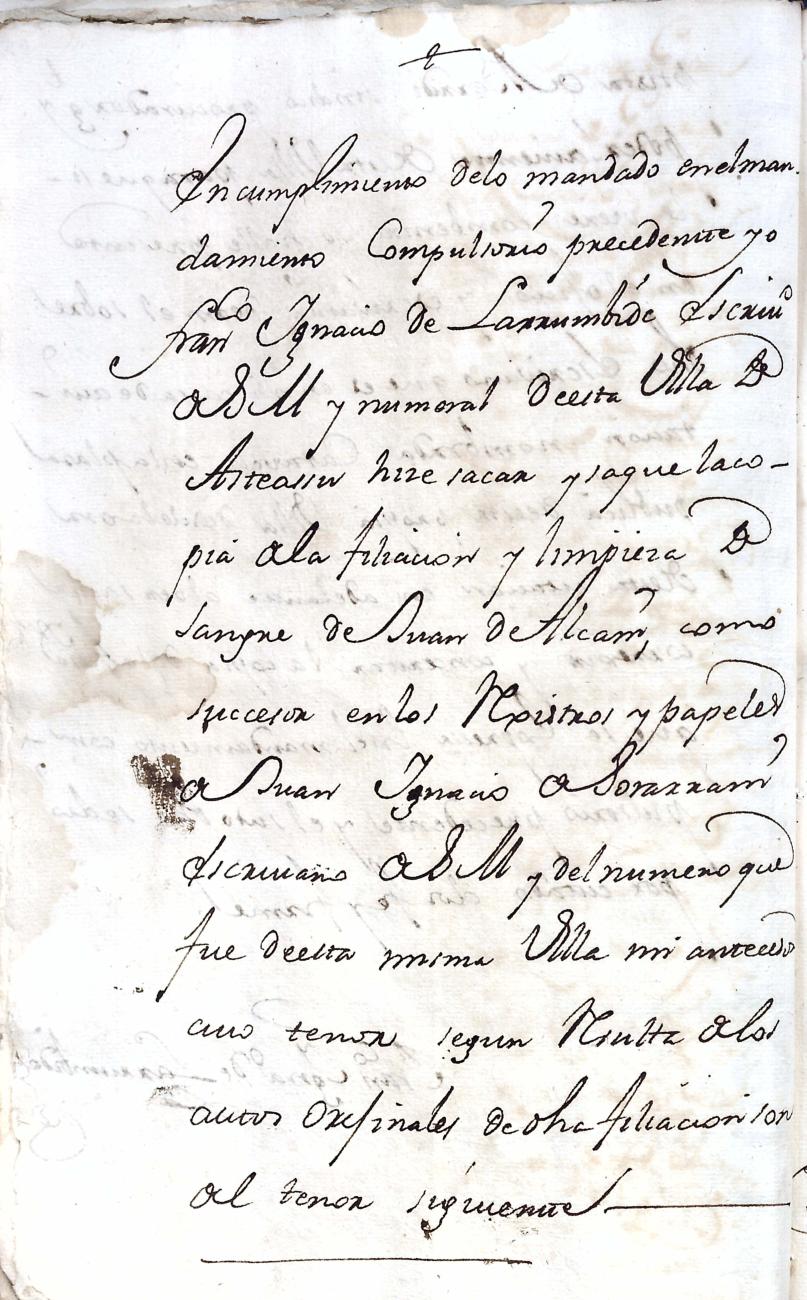 †
En cumplimiento de lo mandado en el man-
damiento Compulsorio precedente yo
fran.co Ignacio de Larrumbide Escriu.o
de S M y numeral de esta Villa de
Asteassu hize sacar y saque la co-
pia de la filiacion y limpieza de
sangre de Juan de Alcam, como
succesor en los Rexistros y papeles
de Juan Ignacio de Sorarram
Escriuano de S M y del numero que
fue de esta misma Villa mi anteceso
cuio tenor segun Resulta de los
autos Orijinales de dha filiacion son
del tenor siguiente